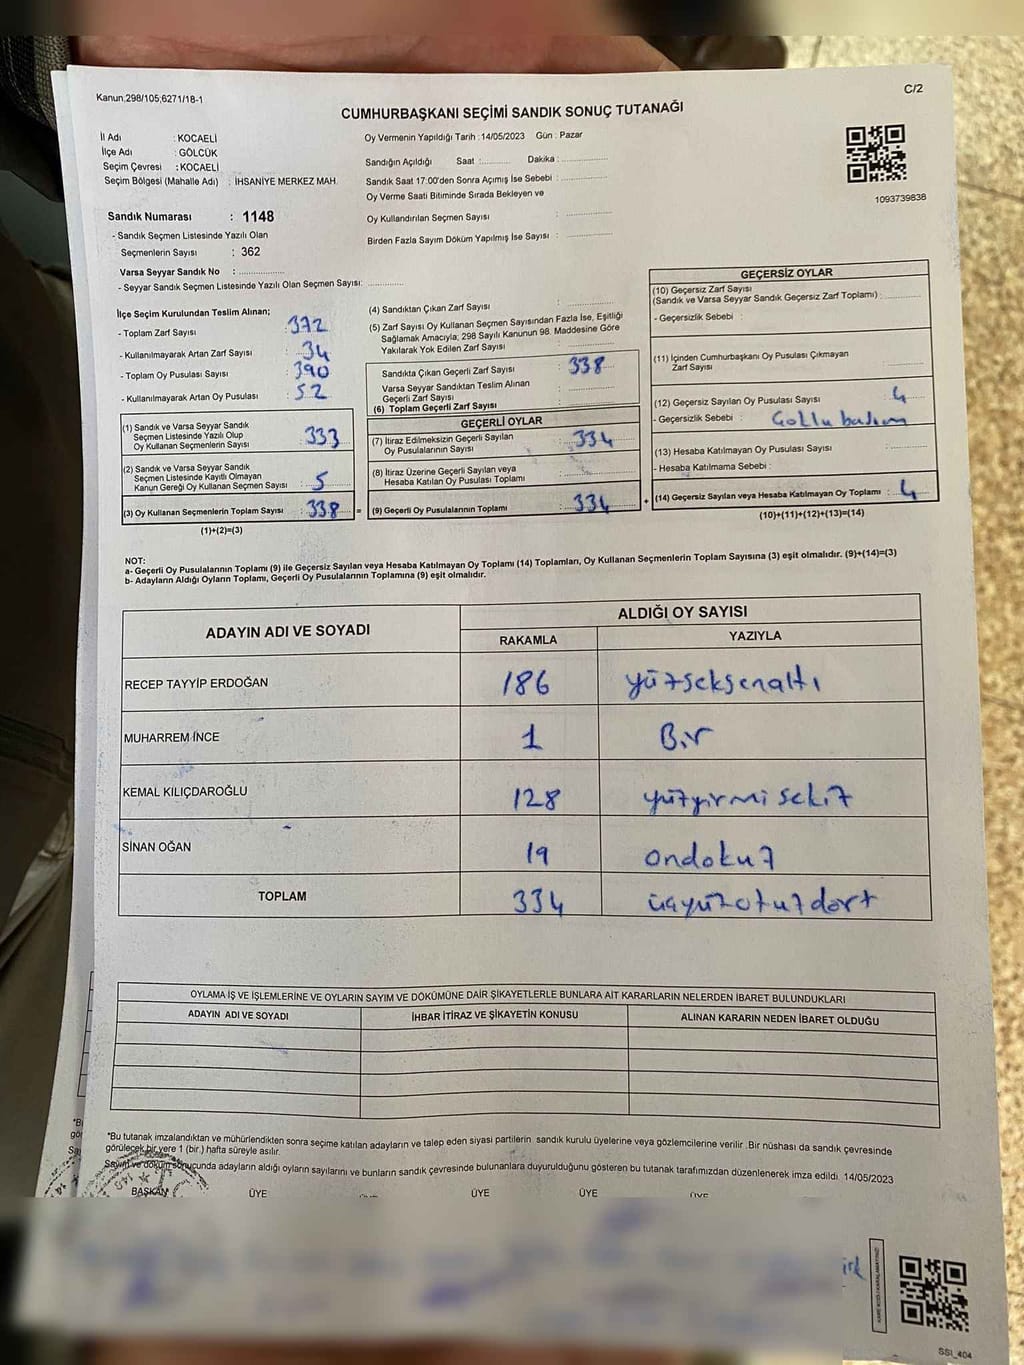 Kanun;298/105;6271/18-1
C/2
CUMHURBAŞKANI SEÇİMİ SANDIK SONUÇ TUTANAĞI
İl Adı : KOCAELİ
İlçe Adı : GÖLCÜK
Seçim Çevresi : KOCAELİ
Seçim Bölgesi (Mahalle Adı) : İHSANİYE MERKEZ MAH.
Sandık Numarası : 1148
- Sandık Seçmen Listesinde Yazılı Olan
Seçmenlerin Sayısı : 362
Varsa Seyyar Sandık No :
- Seyyar Sandık Seçmen Listesinde Yazılı Olan Seçmen Sayısı:
Oy Vermenin Yapıldığı Tarih : 14/05/2023 Gün : Pazar
Sandığın Açıldığı Saat : Dakika :
Sandık Saat 17:00'den Sonra Açımış İse Sebebi :
Oy Verme Saati Bitiminde Sırada Bekleyen ve
Oy Kullandırılan Seçmen Sayısı :
Birden Fazla Sayım Döküm Yapılmış İse Sayısı :
1093739838
İlçe Seçim Kurulundan Teslim Alınan;
- Toplam Zarf Sayısı : 372
- Kullanılmayarak Artan Zarf Sayısı : 34
- Toplam Oy Pusulası Sayısı : 390
- Kullanılmayarak Artan Oy Pusulası : 52
(1) Sandık ve Varsa Seyyar Sandık
Seçmen Listesinde Yazılı Olup
Oy Kullanan Seçmenlerin Sayısı : 333
(2) Sandık ve Varsa Seyyar Sandık
Seçmen Listesinde Kayıtlı Olmayan
Kanun Gereği Oy Kullanan Seçmen Sayısı : 5
(3) Oy Kullanan Seçmenlerin Toplam Sayısı : 338 =
(1)+(2)=(3)
(4) Sandıktan Çıkan Zarf Sayısı :
(5) Zarf Sayısı Oy Kullanan Seçmen Sayısından Fazla İse, Eşitliği
Sağlamak Amacıyla; 298 Sayılı Kanunun 98. Maddesine Göre
Yakılarak Yok Edilen Zarf Sayısı :
Sandıkta Çıkan Geçerli Zarf Sayısı : 338
Varsa Seyyar Sandıktan Teslim Alınan
Geçerli Zarf Sayısı :
(6) Toplam Geçerli Zarf Sayısı :
GEÇERLİ OYLAR
(7) İtiraz Edilmeksizin Geçerli Sayılan
Oy Pusulalarının Sayısı : 334
(8) İtiraz Üzerine Geçerli Sayılan veya
Hesaba Katılan Oy Pusulası Toplamı :
(9) Geçerli Oy Pusulalarının Toplamı : 334 +
GEÇERSİZ OYLAR
(10) Geçersiz Zarf Sayısı
(Sandık ve Varsa Seyyar Sandık Geçersiz Zarf Toplamı) :
- Geçersizlik Sebebi :
(11) İçinden Cumhurbaşkanı Oy Pusulası Çıkmayan
Zarf Sayısı :
(12) Geçersiz Sayılan Oy Pusulası Sayısı : 4
- Geçersizlik Sebebi :
(13) Hesaba Katılmayan Oy Pusulası Sayısı :
- Hesaba Katılmama Sebebi :
(14) Geçersiz Sayılan veya Hesaba Katılmayan Oy Toplamı : 4
(10)+(11)+(12)+(13)=(14)
NOT:
a- Geçerli Oy Pusulalarının Toplamı (9) ile Geçersiz Sayılan veya Hesaba Katılmayan Oy Toplamı (14) Toplamları, Oy Kullanan Seçmenlerin Toplam Sayısına (3) eşit olmalıdır. (9)+(14)=(3)
b- Adayların Aldığı Oyların Toplamı, Geçerli Oy Pusulalarının Toplamına (9) eşit olmalıdır.
ADAYIN ADI VE SOYADI
ALDIĞI OY SAYISI
RAKAMLA YAZIYLA
RECEP TAYYİP ERDOĞAN 186 yüzseksenaltı
MUHARREM İNCE 1 Bir
KEMAL KILIÇDAROĞLU 128 yüzyirmi sekiz
SİNAN OĞAN 19 ondokuz
TOPLAM 334 üçyüzotuzdört
OYLAMA İŞ VE İŞLEMLERİNE VE OYLARIN SAYIM VE DÖKÜMÜNE DAİR ŞİKAYETLERLE BUNLARA AİT KARARLARIN NELERDEN İBARET BULUNDUKLARI
ADAYIN ADI VE SOYADI İHBAR İTİRAZ VE ŞİKAYETİN KONUSU ALINAN KARARIN NEDEN İBARET OLDUĞU
*Bu tutanak imzalandıktan ve mühürlendikten sonra seçime katılan adayların ve talep eden siyasi partilerin sandık kurulu üyelerine veya gözlemcilerine verilir. Bir nüshası da sandık çevresinde
görülecek bir yere 1 (bir) hafta süreyle asılır.
Sayım ve döküm sonucunda adayların aldığı oyların sayılarını ve bunların sandık çevresinde bulunanlara duyurulduğunu gösteren bu tutanak tarafımızdan düzenlenerek imza edildi. 14/05/2023
BAŞKAN ÜYE ÜYE ÜYE ÜYE ÜYE
KARE KODU KARALAMAYINIZ!
SSI_404